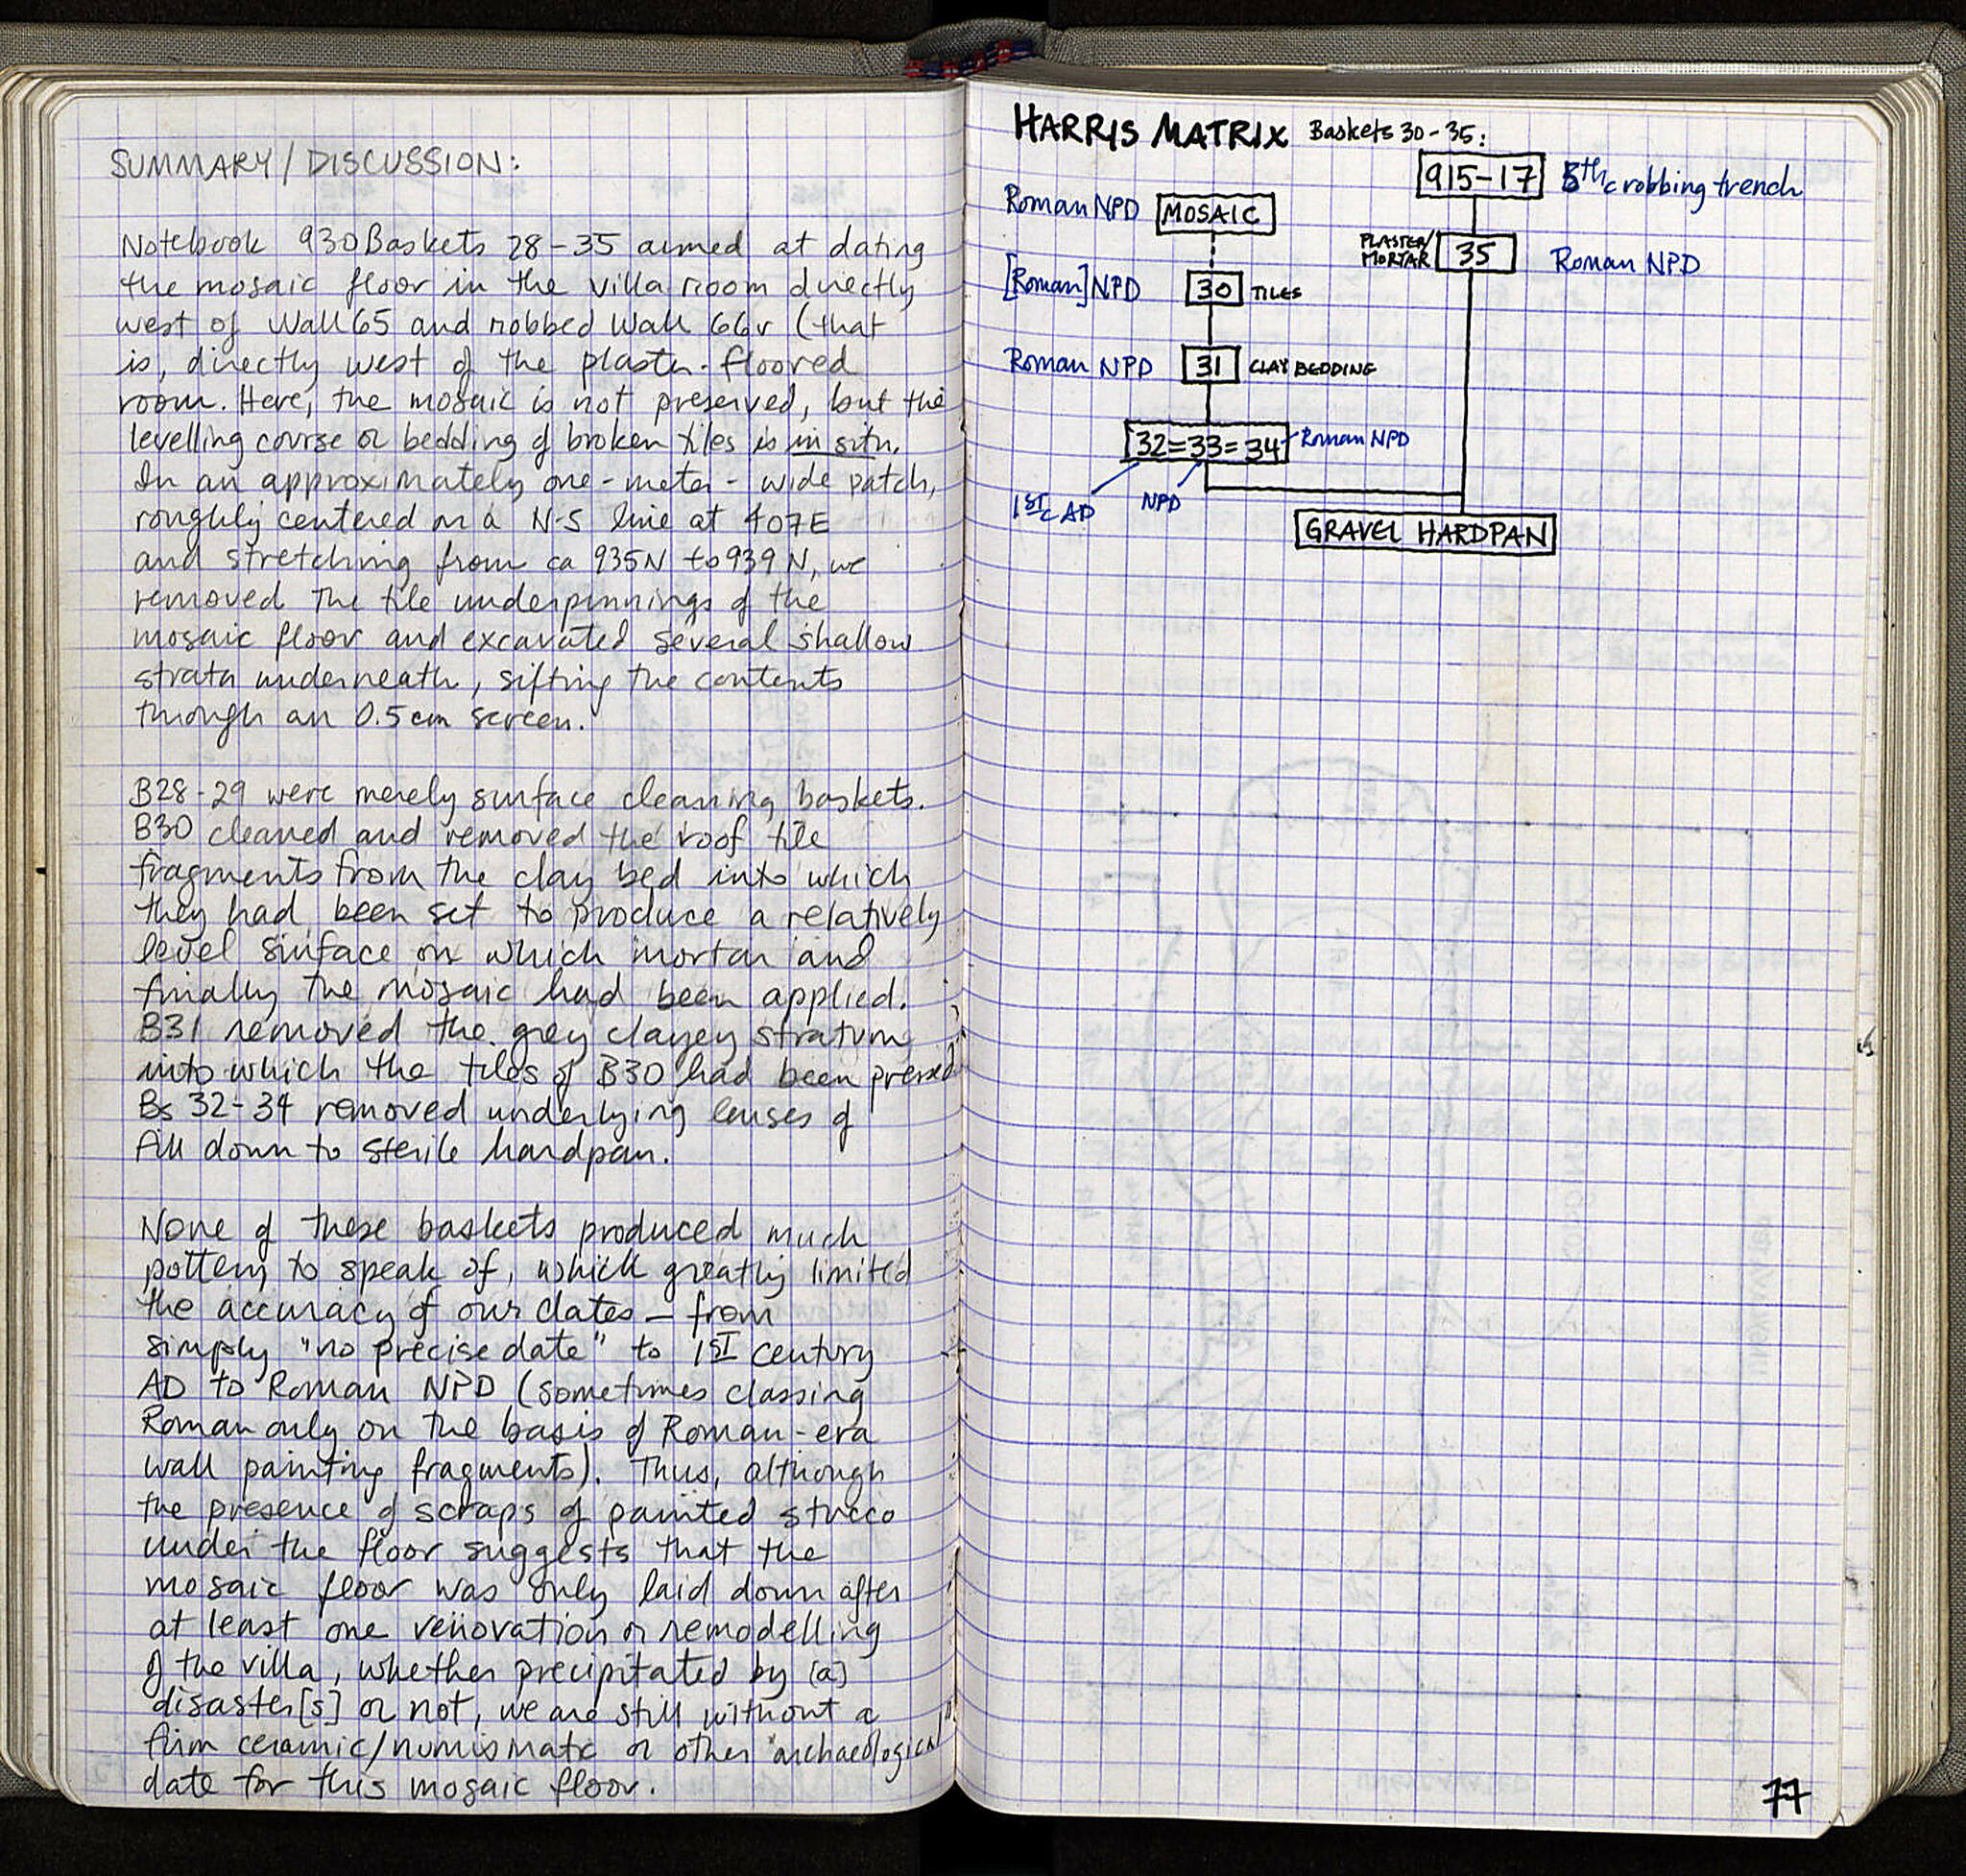 SUMMARY/DISCUSSION:
Notebook 930 Baskets 28-35 aimed at dating
the mosaic floor in the villa room directly
west of Wall 65 and robbed Wall 66r (that
is, directly west of the plaster-floored
room. Here, the mosaic is not preserved, but the
levelling course or bedding of broken tiles is in situ.
In an approximately one-meter-wide patch,
roughly centered on a N-S line at 407E
and stretching from ca 935N to 939N, we
removed the tile underpinnings of the
mosaic floor and excavated several shallow
strata underneath, sifting the contents
through an 0.5cm screen.
B28-29 were merely surface cleaning baskets.
B30 cleaned and removed the roof tile
fragments from the clay bed into which
they had been set to produce a relatively
level surface on which mortar and
finally the mosaic had been applied.
B31 removed the grey clayey stratum
into which the tiles of B30 had been pressed
Bs 32-34 removed underlying lenses of
fill down to sterile hardpan.
None of these baskets produced much
pottery to speak of, which greatly limited
the accuracy of our dates - from
simply "no precise date" to 1ST century
AD to Roman NPD (sometimes classing
Roman only on the basis of Roman-era
wall painting fragments). Thus, although
the presence of scraps of painted stucco
under the floor suggests that the
mosaic floor was only laid down after
at least one renovation or remodelling
of the villa, whether precipitated by (a)
disaster[s] or not, we are still without a
firm ceramic/numismatic or other "archaeological"
date for this mosaic floor.
HARRIS MATRIX Baskets 30-35:
915-17 5th c robbing trench
Roman NPD MOSAIC
PLASTER/
MORTAR 35 Roman NPD
[Roman] NPD 30 TILES
Roman NPD 31 CLAY BEDDING
32=33=34 Roman NPD
1ST c AD NPD
GRAVEL HARDPAN
77